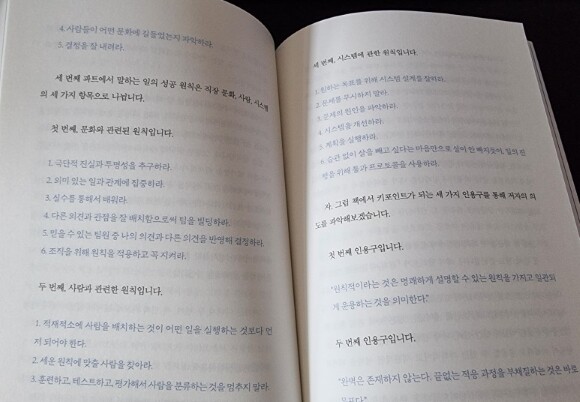 4. 사람들이 어떤 문화에 길들었는지 파악하라.
5. 결정을 잘 내려라.
세 번째 파트에서 말하는 일의 성공 원칙은 직장 문화, 사람, 시스템
의 세 가지 항목으로 나뉩니다.
첫 번째, 문화와 관련된 원칙입니다.
1. 극단적 진실과 투명성을 추구하라.
2. 의미 있는 일과 관계에 집중하라.
3. 실수를 통해서 배워라.
4. 다른 의견과 관점을 잘 배치함으로써 팀을 빌딩하라.
5. 믿을 수 있는 팀원 중 나의 의견과 다른 의견을 반영해 결정하라.
6. 조직을 위해 원칙을 적용하고 꼭 지켜라.
두 번째, 사람과 관련한 원칙입니다.
1. 적재적소에 사람을 배치하는 것이 어떤 일을 실행하는 것보다 먼
저 되어야 한다.
2. 세운 원칙에 맞출 사람을 찾아라.
3. 훈련하고, 테스트하고, 평가해서 사람을 분류하는 것을 멈추지 말라.
세 번째, 시스템에 관한 원칙입니다.
1. 원하는 목표를 위해 시스템 설계를 잘하라.
2. 문제를 무시하지 말라.
3. 문제의 원인을 파악하라.
4. 시스템을 개선하라.
5. 계획을 실행하라.
6. 습관 없이 살을 빼고 싶다는 마음만으로 살이 안 빠지듯이, 일의 원
칙을 위해 툴과 프로토콜을 사용하라.
자, 그럼 책에서 키포인트가 되는 세 가지 인용구를 통해 저자의 의
도를 파악해보겠습니다.
첫 번째 인용구입니다.
"원칙적이라는 것은 명쾌하게 설명할 수 있는 원칙을 가지고 일관되
게 운용하는 것을 의미한다."
두 번째 인용구입니다.
존재하지 않는다. 끝없는 적응 과정을 부채질하는 것은 바로